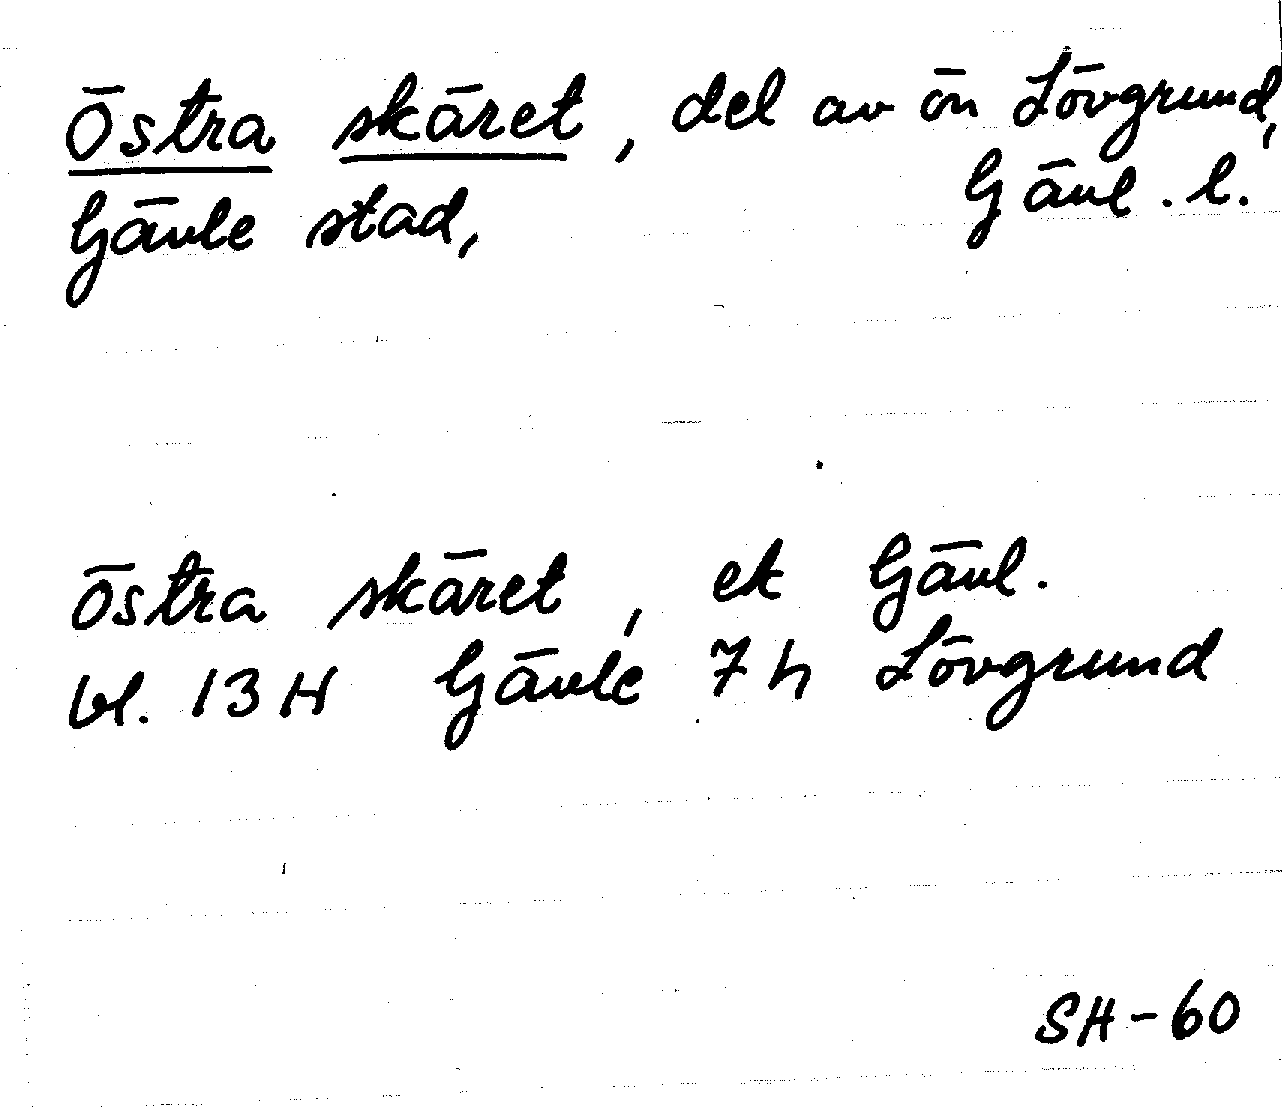 Östra skäret, del av ön Lövgrund,
Gävle stad, Gävl. l.
Östra skäret, ek Gävl.
bl. 13 H Gävle 7 h Lövgrund
SH-60